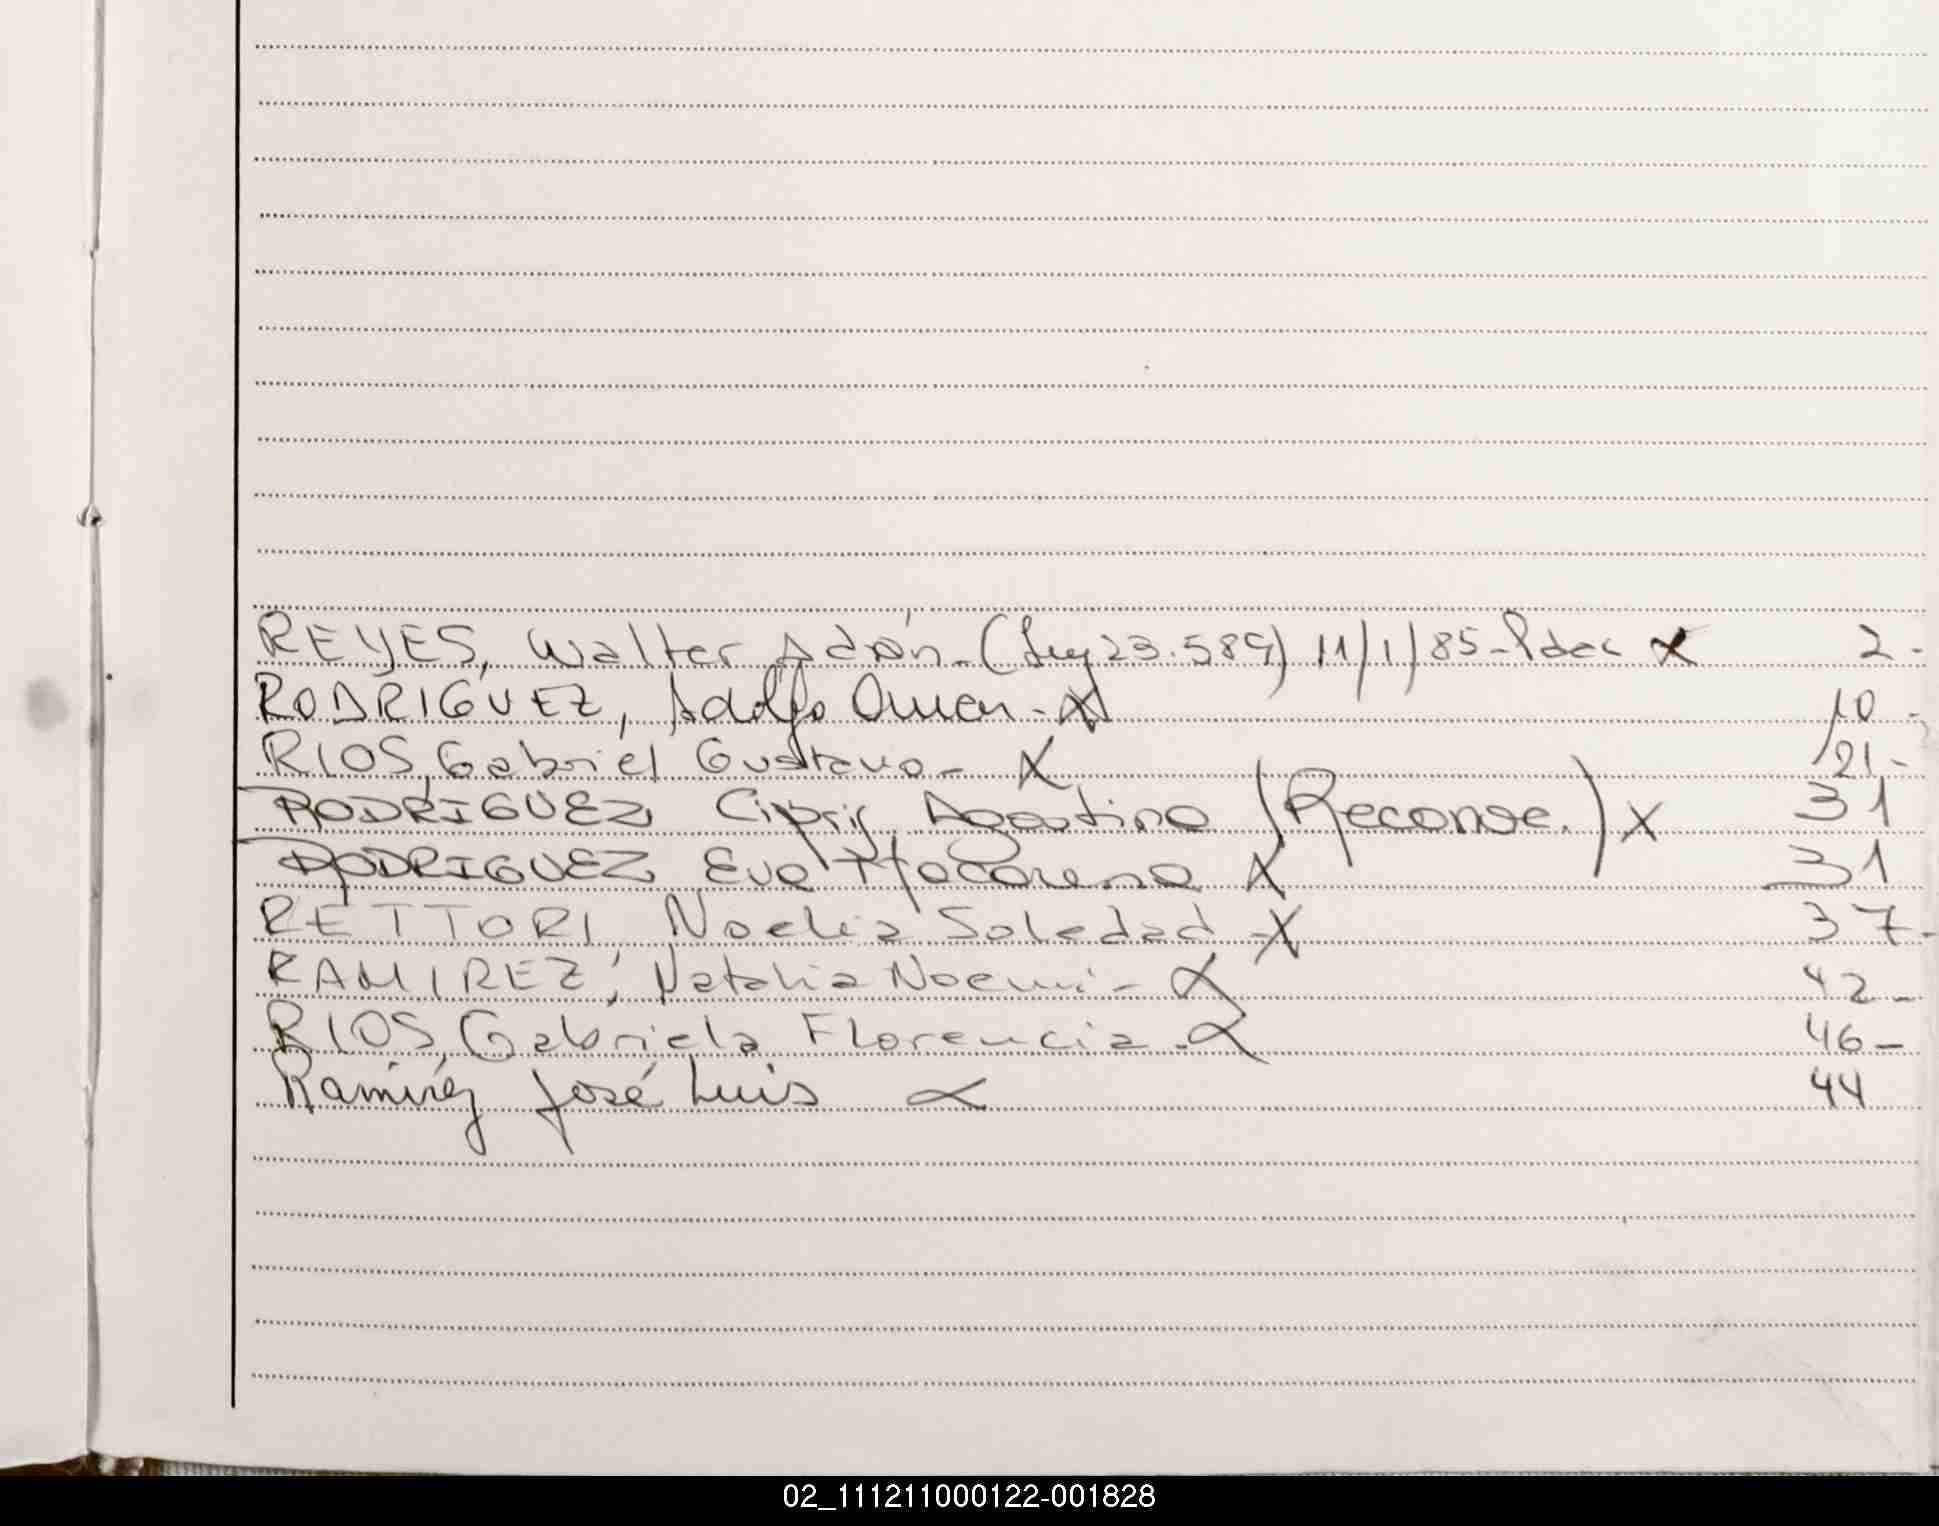 REYES, Walter Adán - (Ley 23.589) 11/1/85 - X 2 -
RODRIGUEZ, Adolfo Omar - X 10 -
RIOS, Gabriel Gustavo - X 21 -
RODRIGUEZ Agostina (Reconoc.) X 31
RODRIGUEZ Eva Macarena X 31
RETTORI, Noelia Soledad - X 37 -
RAMIREZ, Natalia Noemi - X 42 -
RIOS, Gabriela Florencia - X 46 -
Ramírez José Luis X 44
02_111211000122-001828